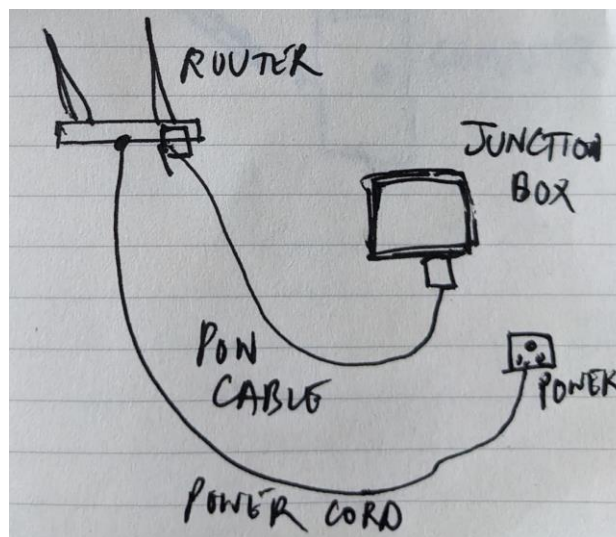 ROUTER
JUNCTION
BOX
PON
CABLE
POWER
POWER CORD